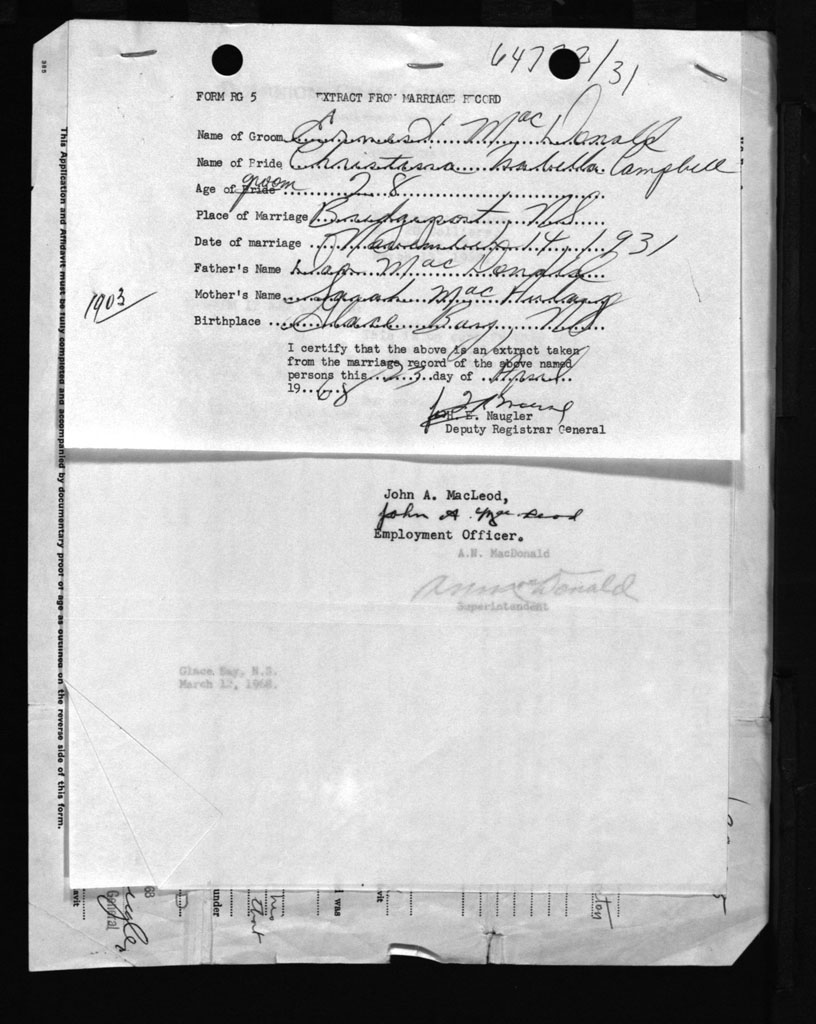 64772/31
FORM RG 5 EXTRACT FROM MARRIAGE RECORD
Name of Groom Ernest MacDonald
Name of Bride Christena Isabella Campbell
Age of Bride groom 28
Place of Marriage Bridgeport, N.S.
Date of marriage November 14, 1931
Father's Name Dan MacDonald
Mother's Name Sarah Mac
1903
Birthplace Glace Bay, N.S.
I certify that the above is an extract taken
from the marriage record of the above named
persons this 23 day of April
1968
H. E. Naugler
Deputy Registrar General
John A. MacLeod,
John A. MacLeod
Employment Officer.
A.N. MacDonald
A N MacDonald
Superintendent
Glace Bay, N.S.
March 12, 1968.
This Application and Affidavit must be fully completed and accompanied by documentary proof of age as outlined on the reverse side of this form.
68
General
under
no
that
I was